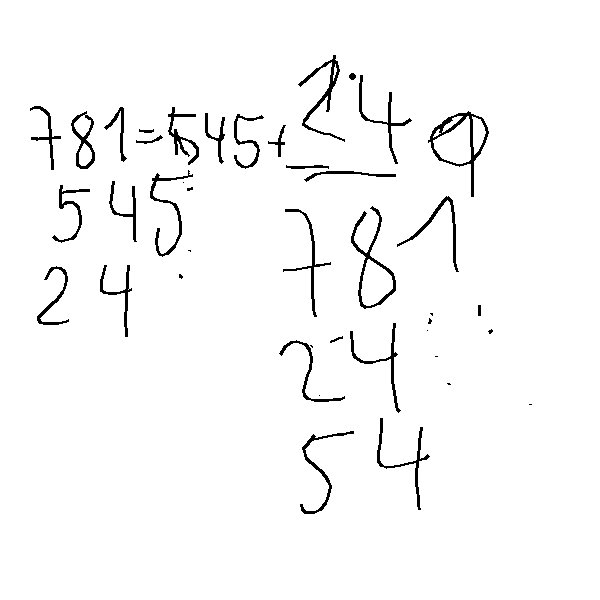 781=545+24 9
545
24
781
24
54